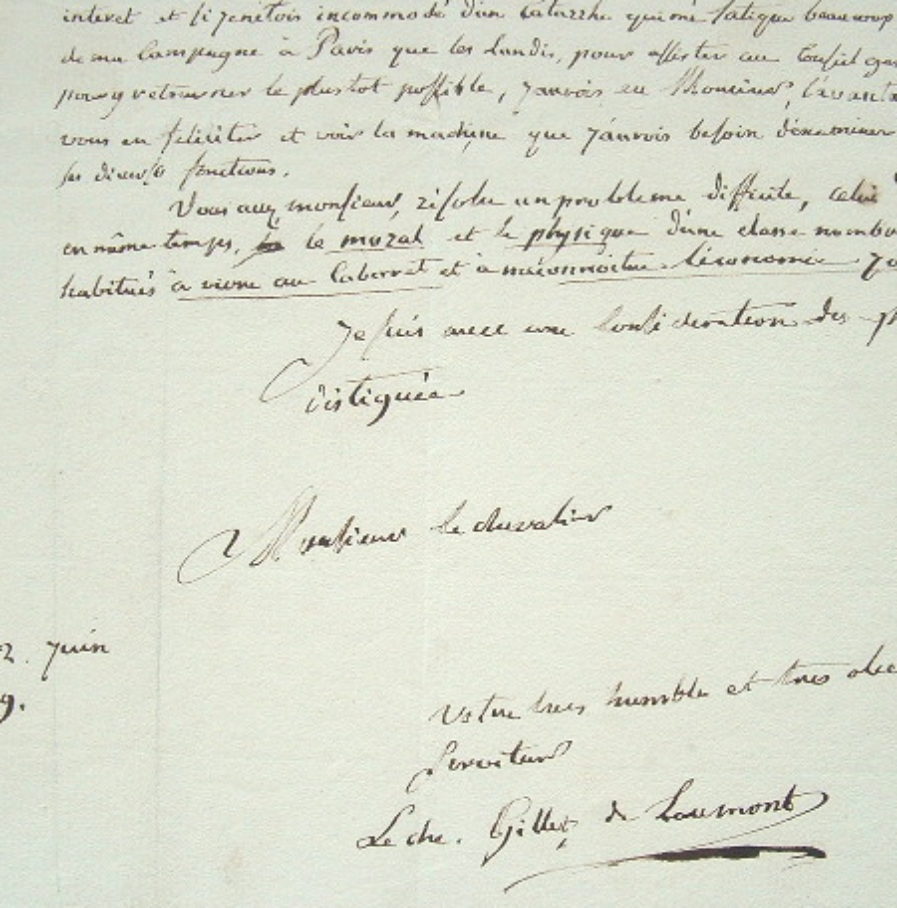 interet et si je n'étois incommodé d'un catarrhe qui me fatigue beaucoup
de ma Campagne à Paris que les Lundis, pour assister au Conseil
pour y retourner le plustot possible, j'aurois eu Monsieur, l'avanta
vous en feliciter et voir la machine que j'aurois besoin d'examiner
ses diverses fonctions.
Vous avez monsieur, résolu un probleme difficile, celui
en même temps, le moral et le physique d'une classe nombr
habitués à vivre au Cabarret et à méconnoitre l'économie
Je suis avec une Consideration des
distiguée
Monsieur le chevalier
2. Juin
9.
Votre tres humble et tres obe
Serviteur
Le che. Gillet de Laumont